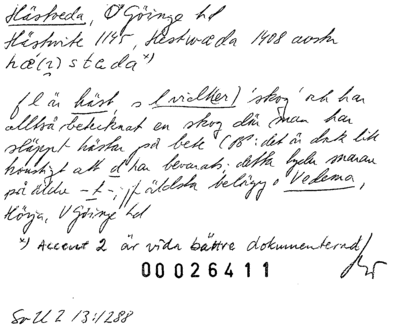 Hästveda, Ö Göinge hd
Hästvite 1145, Hestwæda 1408 avskr
hæ(2)stada*)
fl är häst, sl vidher) 'skog' och har
alltså betecknat en skog där man har
släppt hästar på bete (OBS: det är dock lite
konstigt att d har bevarats: detta tyder snarast
på äldre -t-; jf äldsta belägg o Vedema,
Hörja, V Göinge hd
*) Accent 2 är vida bättre dokumenterad/
00026411
SOU 2 13:1288